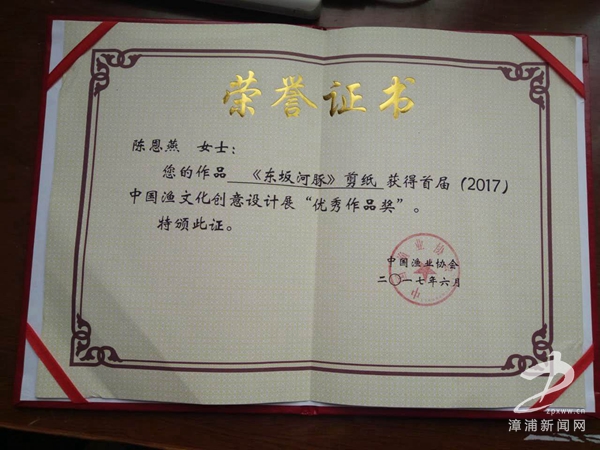 荣誉证书
陈恩燕 女士：
您的作品 《东坂河豚》剪纸 获得首届（2017）
中国渔文化创意设计展“优秀作品奖”。
特颁此证。
中国渔业协会
二〇一七年六月
zpxww.cn
漳浦新闻网